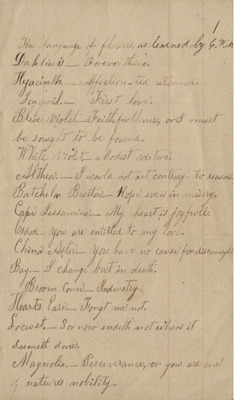 1
The language of flowers as learned by G.
Dahlia — Forever thine.
Hyacinth — Affection returned.
Jonquil — First love.
Blue Violet — Faithfullness, and must
be sought to be found.
White Violet — Modest virtue.
Althea — I would not act contrary to reason
Batchelor Button — Hope even in misery.
Cape Jessamine — My heart is joyfull.
you are entitled to my love.
China Aster — You have no cause for
Bay — I change but in death.
Broom Corn — Industry.
Hearts Ease — Forget me not.
Locust — Sorrow endeth not when it
seemeth done.
Magnolia — Perseverance, or you are one
of natures nobility.